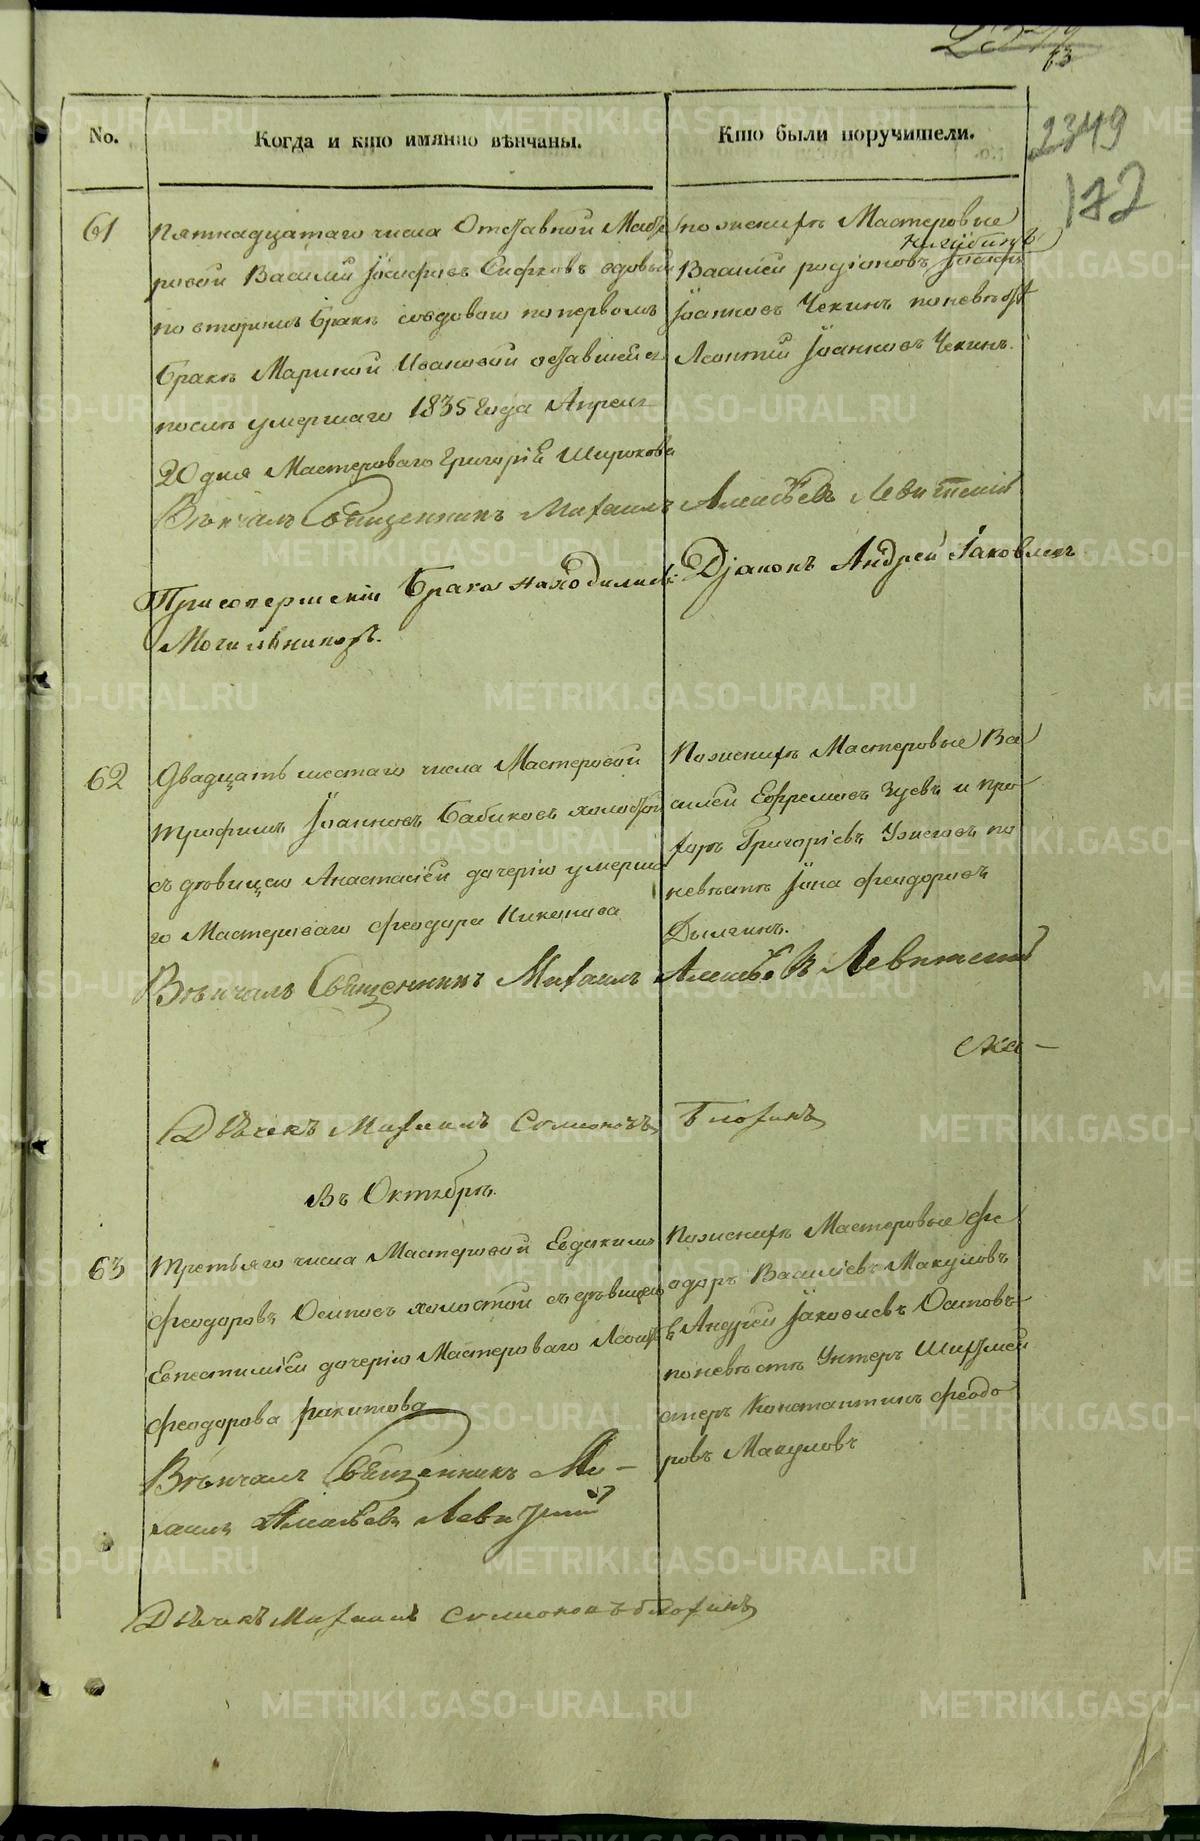 63
2349
172
No.
Когда и кто имянно вѣнчаны.
Кто были поручители.
61
Пятнадцатаго числа Отставной Масте
ровой Василий Іосифовъ вдовый
по второмъ бракѣ со вдовою по первомъ
бракѣ Мариной Ивановой оставшейся
послѣ умершаго 1835 года Апреля
20 дня Мастероваго Григорія Широкова
Вѣнчалъ Священникъ Михаилъ Алексѣевъ Левитскій
При совершеніи брака находились: Діаконъ Андрей Іаковлевъ
Могильниковъ.
по женихѣ Мастеровые
Василей Родіоновъ
Іоанновъ Чекинъ по невѣстѣ
Леонтій Іоанновъ Чекинъ.
62
Двадцать шестаго числа Мастеровой
Трофимъ Іоанновъ Бабиковъ холостой
съ дѣвицею Анастасіей дочерію умерша
го Мастероваго Феодора Никонова
Вѣнчалъ Священникъ Михаилъ Алексѣевъ Левитскій
По женихѣ Мастеровые Ва
силей Ефремовъ Зуевъ и Про
хоръ Григоріевъ по
невѣстѣ Іона Феодоровъ
Дылгинъ.
Дьячекъ Михаилъ Симоновъ Блохинъ
Въ Октябрѣ.
63
Третьяго числа Мастеровой Евдокимъ
Феодоровъ Осиповъ холостой съ дѣвицею
дочерію Мастероваго
Феодорова Ракитова
Вѣнчалъ Священникъ Ми-
хаилъ Алексѣевъ Левитскій
По женихѣ Мастеровые Фе
одоръ Василіевъ Макуловъ
Андрей Іаковлевъ Осиповъ
по невѣстѣ Унтеръ Шихтмей
стеръ Константинъ Феодо
ровъ Макуловъ
Дьячекъ Михаилъ Симоновъ Блохинъ
METRIKI.GASO-URAL.RU